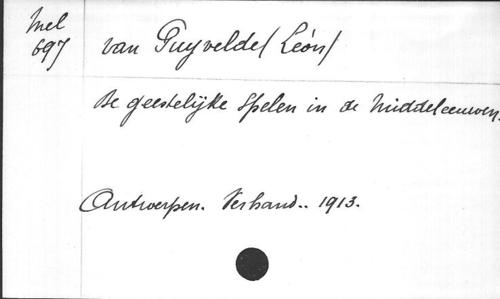 Mel
697
van Puyvelde (Léon)
De geestelijke Spelen in de Middeleeuwen.
Antwerpen. Verhand.. 1913.